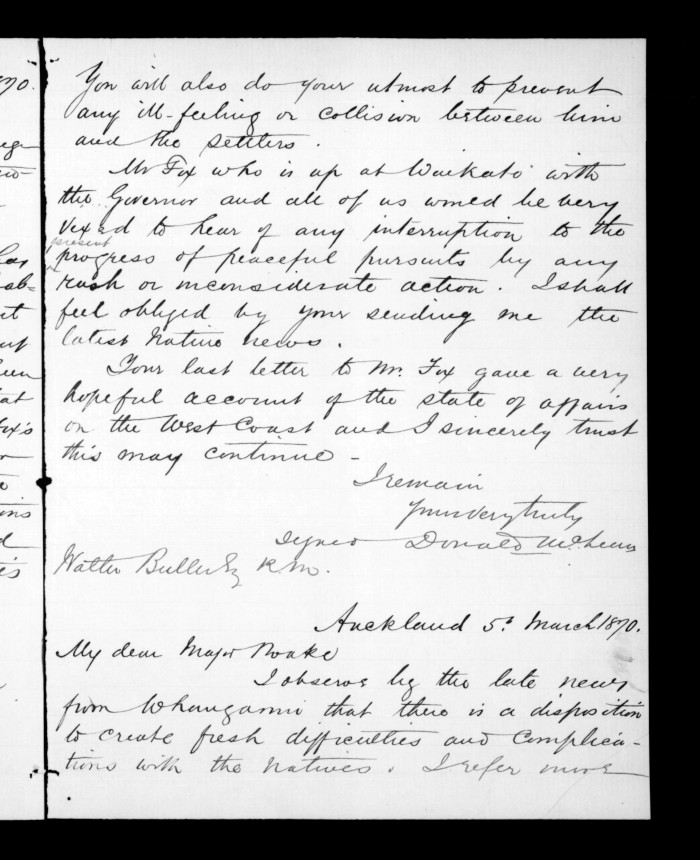 You will also do your utmost to prevent
any ill-feeling or collision between him
and the settlers.
Mr Fox who is up at Waikato with
the Governor and all of us would be very
vexed to hear of any interruption to the
present
progress of peaceful pursuits by any
rash or inconsiderate action. I shall
feel obliged by your sending me the
latest Native news.
Your last letter to Mr. Fox gave a very
hopeful account of the state of affairs
on the West Coast and I sincerely trust
this may continue -
I remain
Yours very truly
Signed Donald McLean
Walter Buller Esq R.M.
Auckland 5t March 1870.
My dear Major Noake
I observe by the late news
from Whanganui that there is a disposition
to create fresh difficulties and complica-
tions with the Natives. I refer more